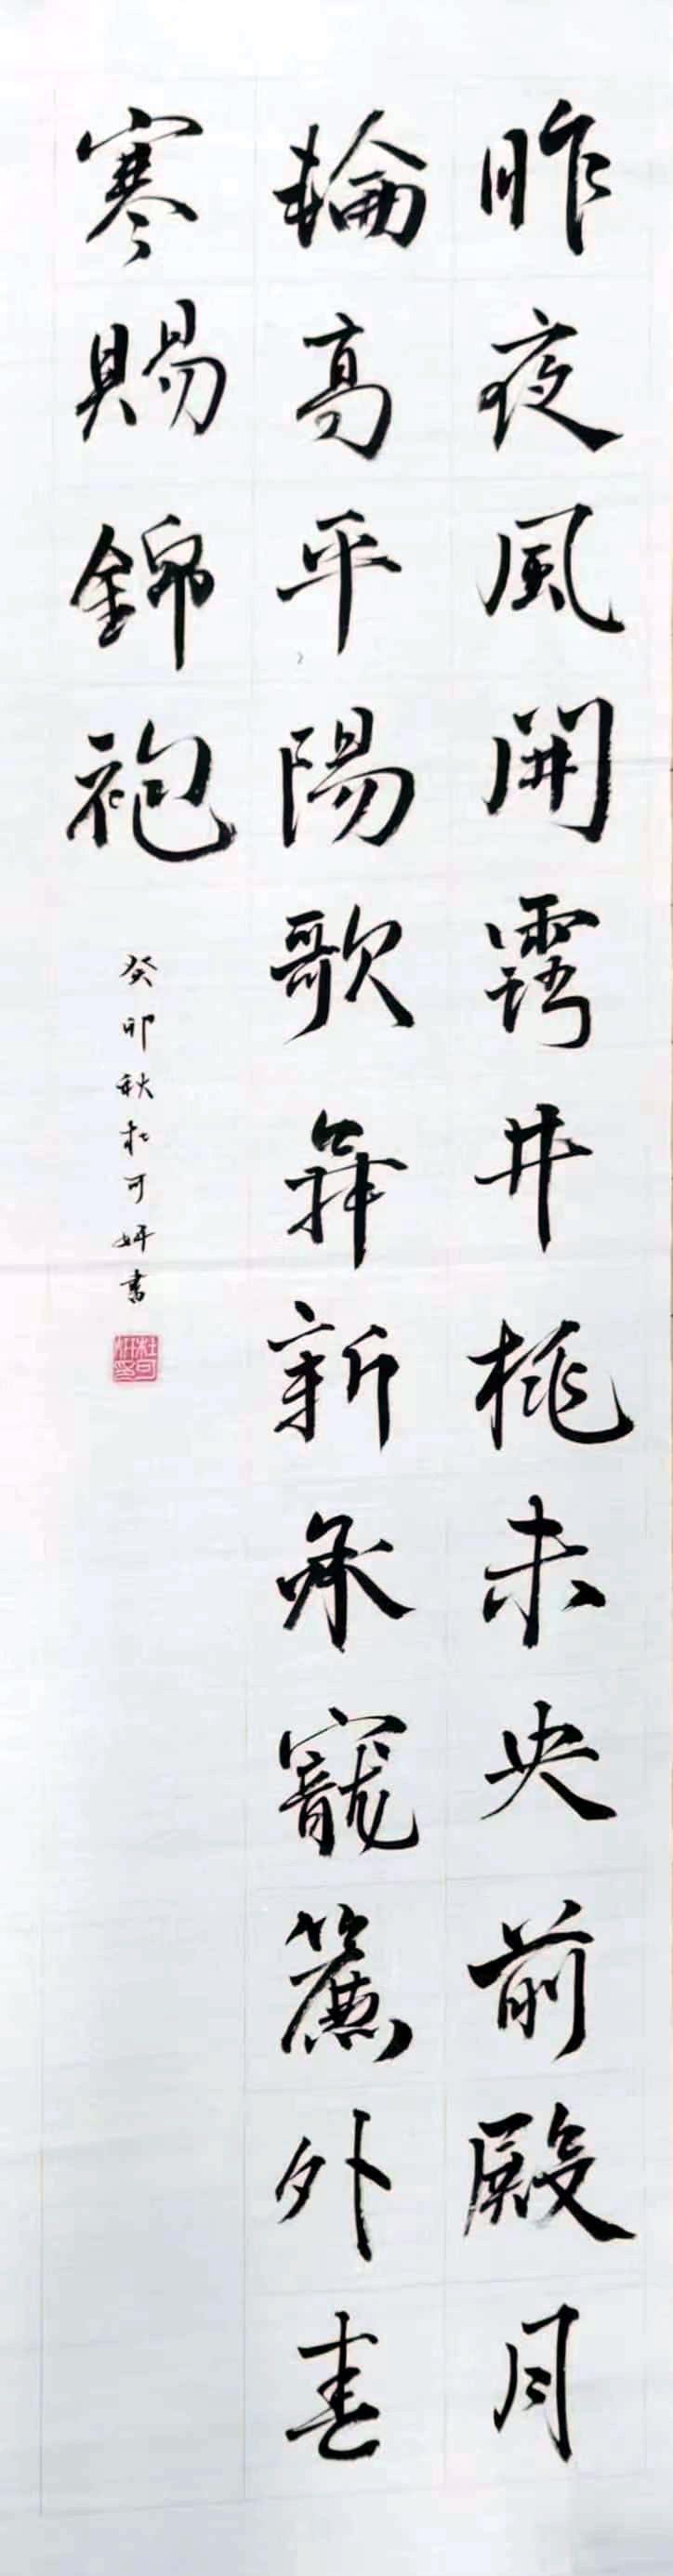 昨夜風開露井桃未央前殿月
輪高平陽歌舞新承寵簾外春
寒賜錦袍
癸卯秋杜可妍書
杜可妍印